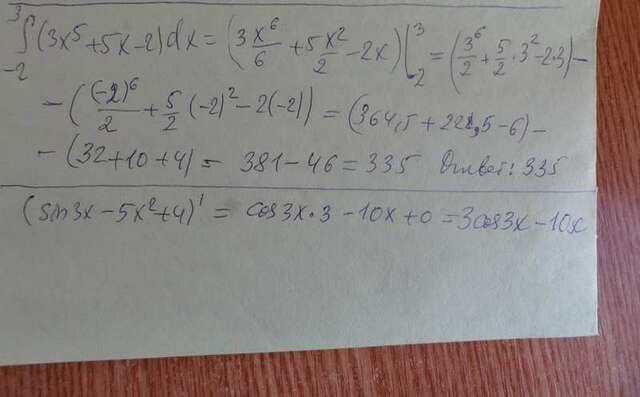 ∫₋₂³ (3x⁵+5x-2)dx = (3x⁶/6 + 5x²/2 - 2x)|₋₂³ = (3⁶/2 + 5/2·3² - 2·3) -
- ((-2)⁶/2 + 5/2 (-2)² - 2(-2)) = (364,5 + 22,5 - 6) -
- (32+10+4) = 381 - 46 = 335 Ответ: 335
(sin3x - 5x² + 4)' = cos3x·3 - 10x + 0 = 3cos3x - 10x